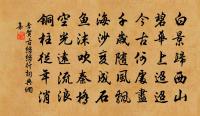 白景歸西山
碧華上迢迢
今古何處盡
千歲隨風飄
海沙變成石
魚沫吹秦橋
空光遠流浪
銅柱從年消
李賀古悠悠行詞典網
集